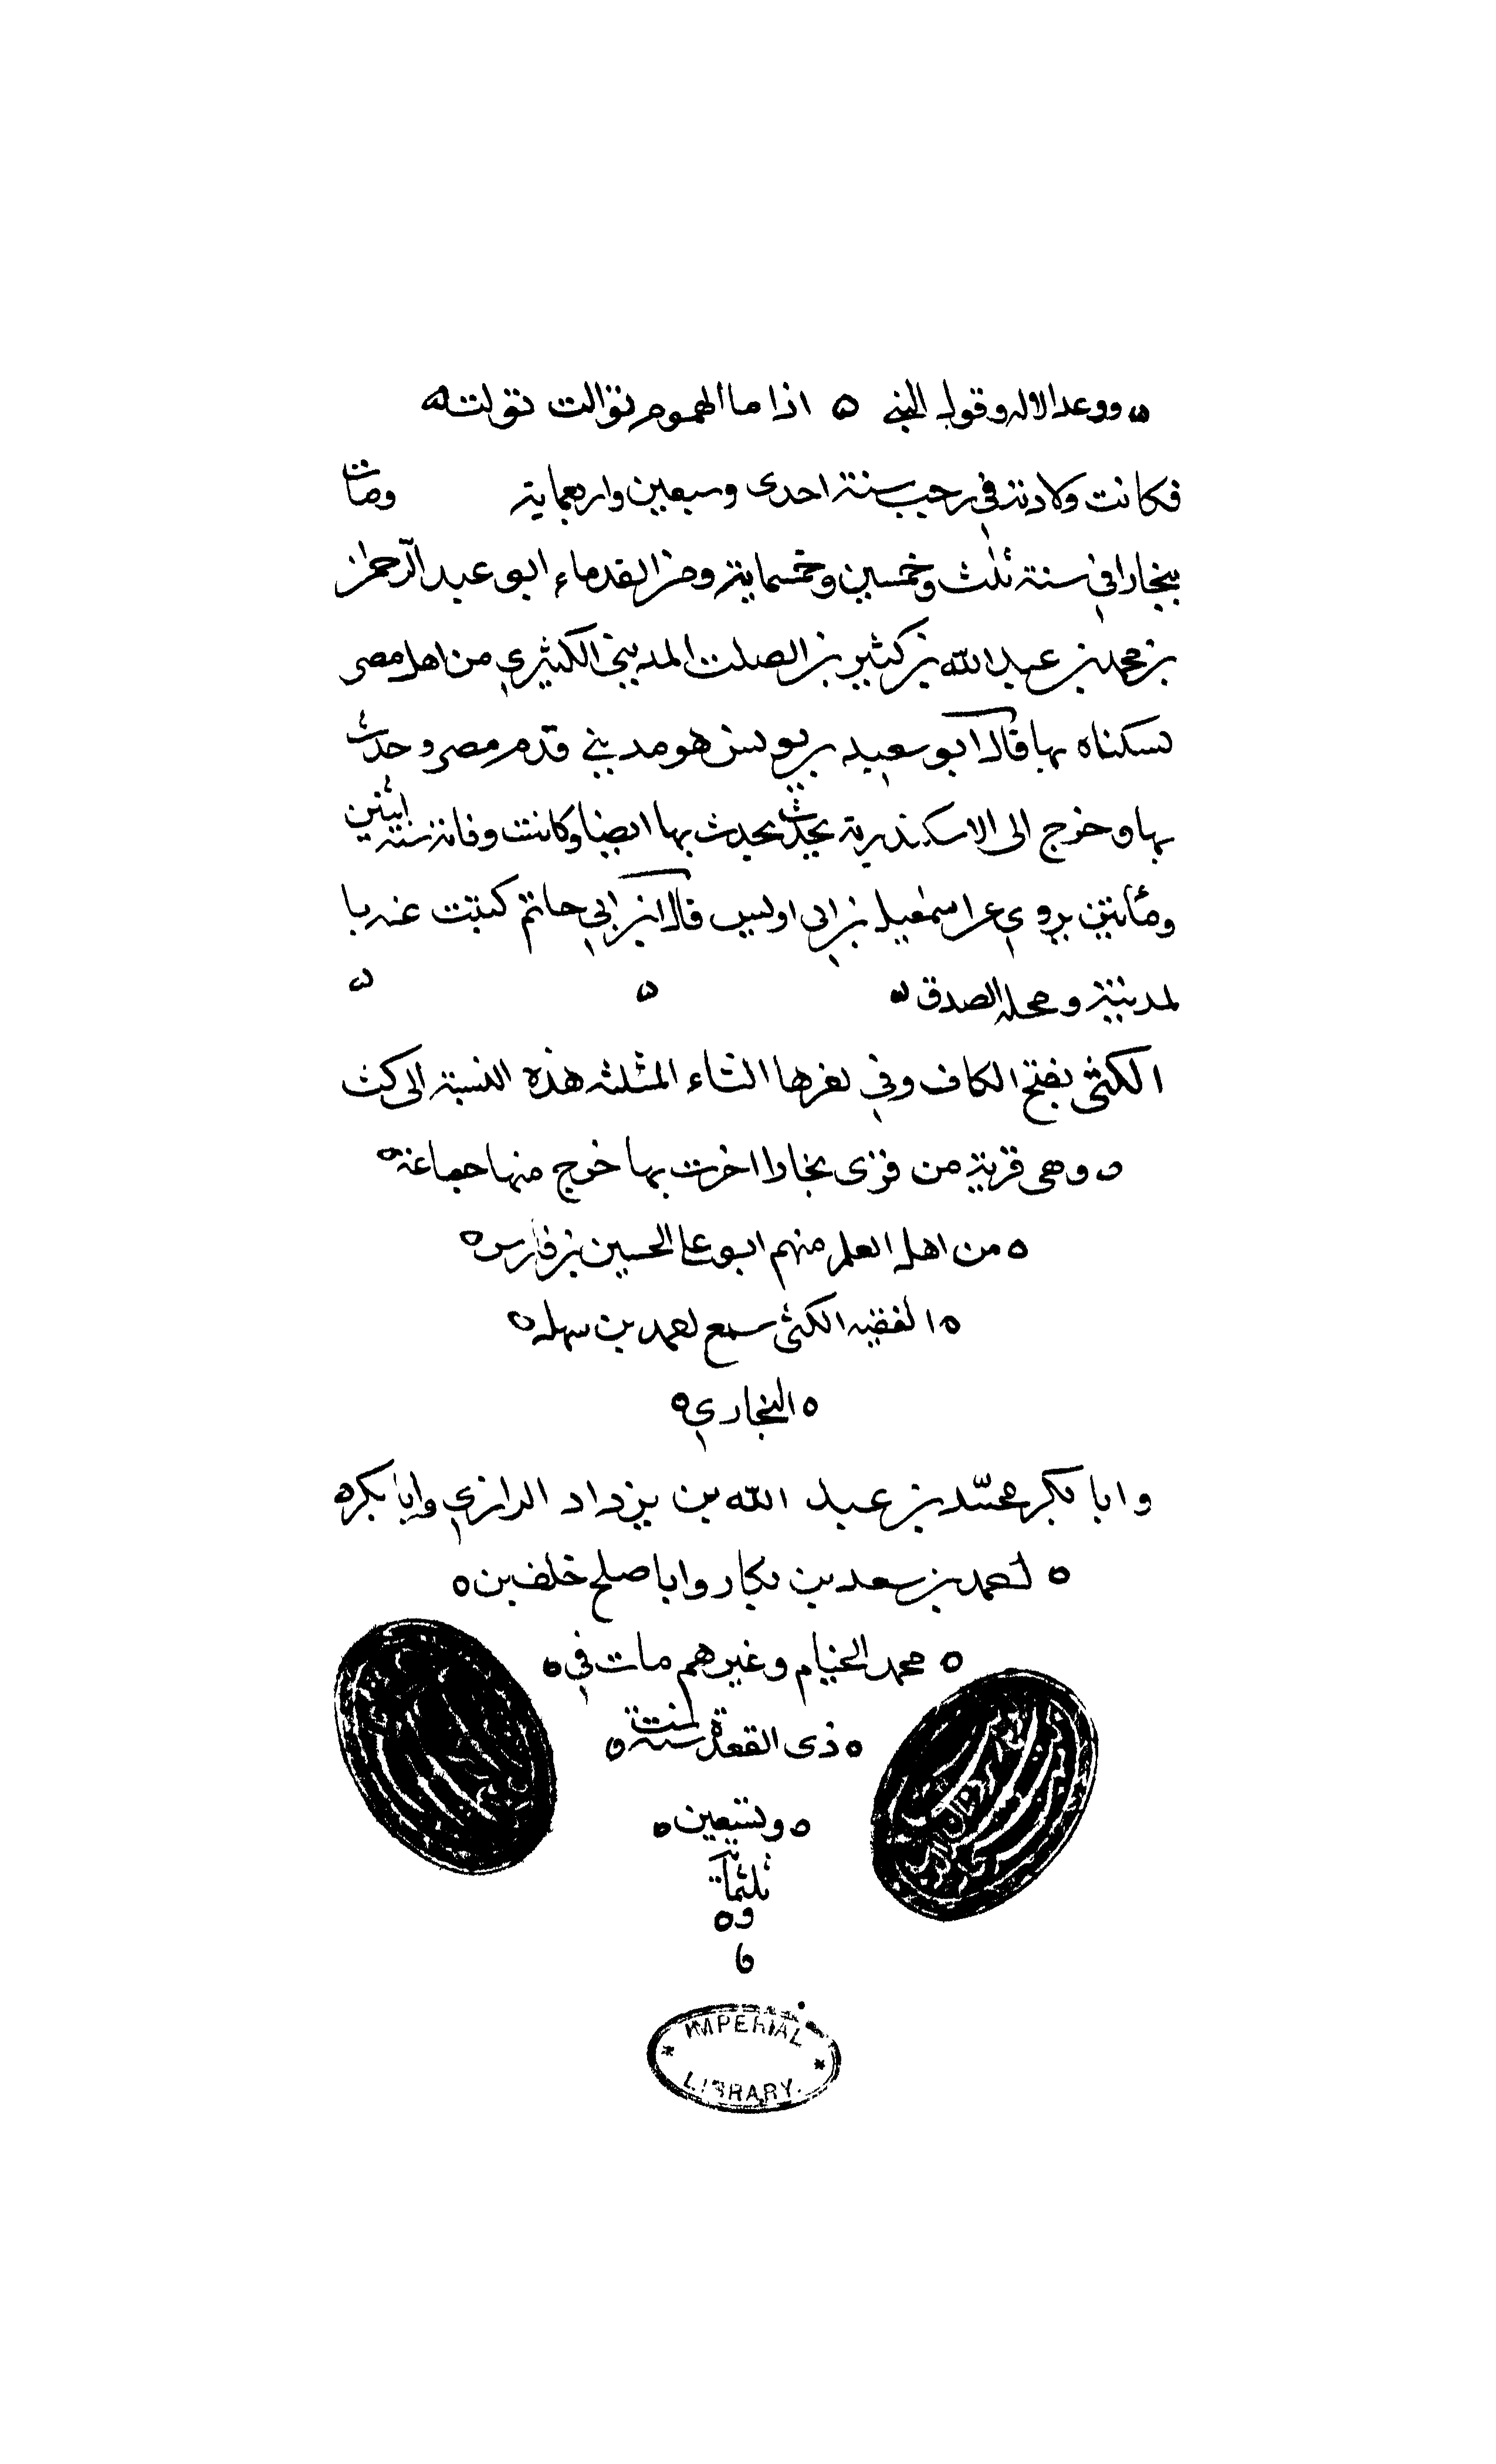 ووعد الاله وقول النبي ه اذا ما الهموم توالت تولت ه
فكانت ولادته في رجب سنة احدى وسبعين واربعماية ومات
ببخارا في سنة ثلث وخمسين وخمسماية ومن القدماء ابو عبد الرحمن
بن محمد بن عبد الله بن كثير بن الصلت المديني الكثيري من اهل مصر
سكناه بها قال ابو سعيد بن يونس هو مديني قدم مصر وحدث
بها وخرج الى الاسكندرية يحدث يحدث بها ايضا وكانت وفاته سنة اثنين
ومأتين يروي عن اسمعيل بن ابي اويس قال ابن ابي حاتم كتبت عنه با
لمدينة ومحله الصدق ه ه ه
الكثي بفتح الكاف وفي اخرها الثاء المثلثة هذه النسبة الى كث
ه وهي قرية من قرى بخارا اخرت بها خرج منها جماعة ه
ه من اهل العلم منهم ابو علي الحسين بن فارس ه
ه الفقيه الكثي سمع احمد بن سهل ه
ه البخاري ه
وابا بكر محمد بن عبد الله بن يزداد الرازي وابا بكر ه
ه احمد بن سعد بن بكار وابا صلح خلف بن ه
ه محمد الخيام وغيرهم مات في ه
ه ذي القعدة سنة ست ه
ه وتسعين ه
ثلثماية
و ه
IMPERIAL
LIBRARY.